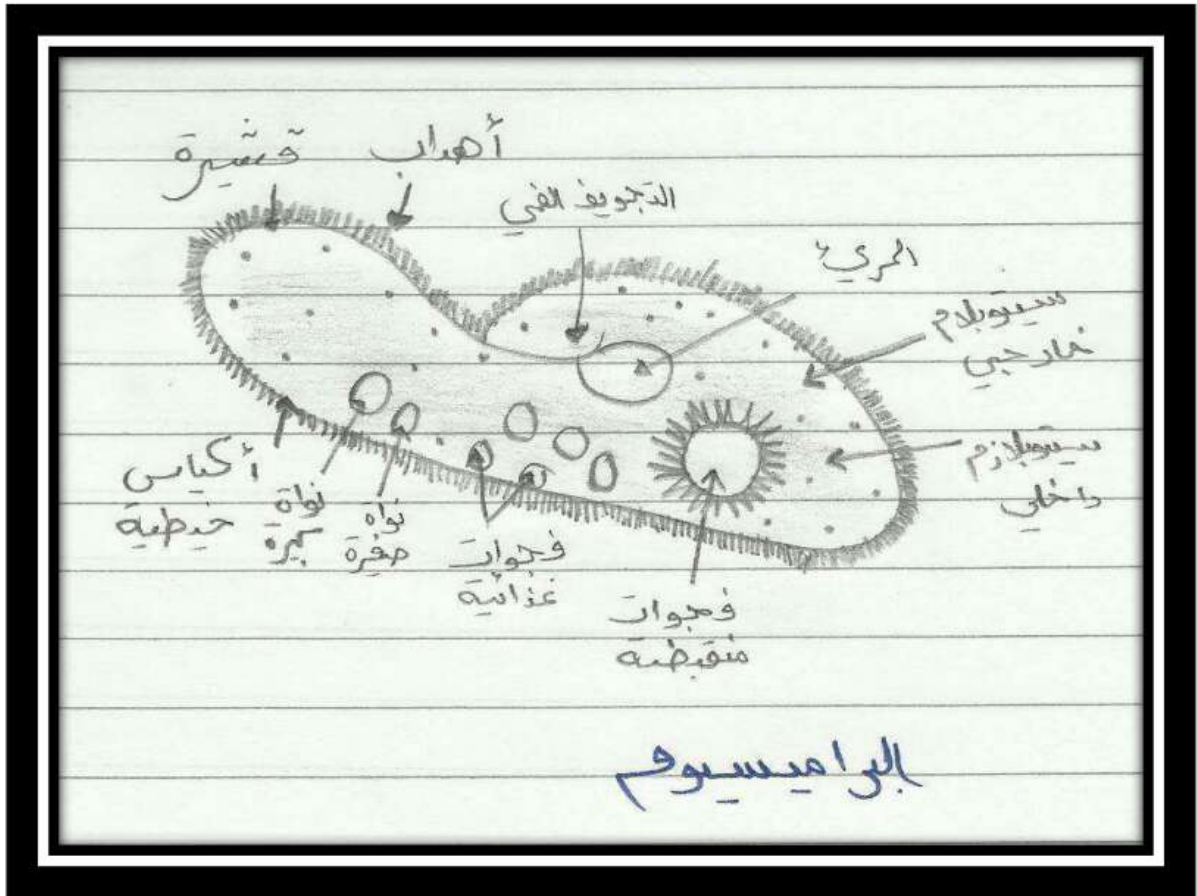 قشيرة
أهداب
التجويف الفمي
المريء
سيتوبلازم
خارجي
سيتوبلازم
داخلي
أكياس
خيطية
نواة
كبيرة
نواة
صغيرة
فجوات
غذائية
فجوات
منقبضة
البراميسيوم